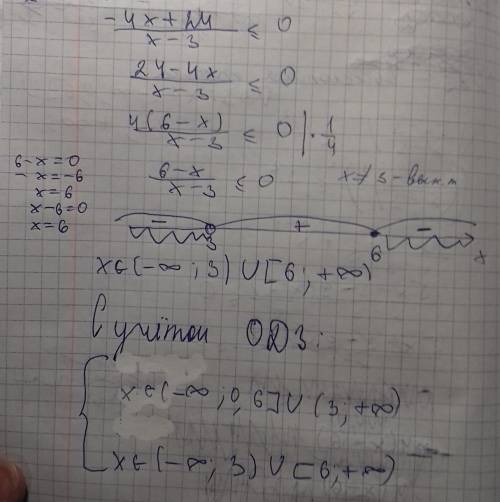 (-4x+24)/(x-3) ≤ 0
(24-4x)/(x-3) ≤ 0
4(6-x)/(x-3) ≤ 0 | · 1/4
6-x=0
-x=-6
x=6
x-6=0
x=6
(6-x)/(x-3) ≤ 0
x≠3 - вып.
- + -
3 6 x
x∈(-∞; 3)∪[6; +∞)
С учётом ОДЗ:
x∈(-∞; 0,6]∪(3; +∞)
x∈(-∞; 3)∪[6; +∞)